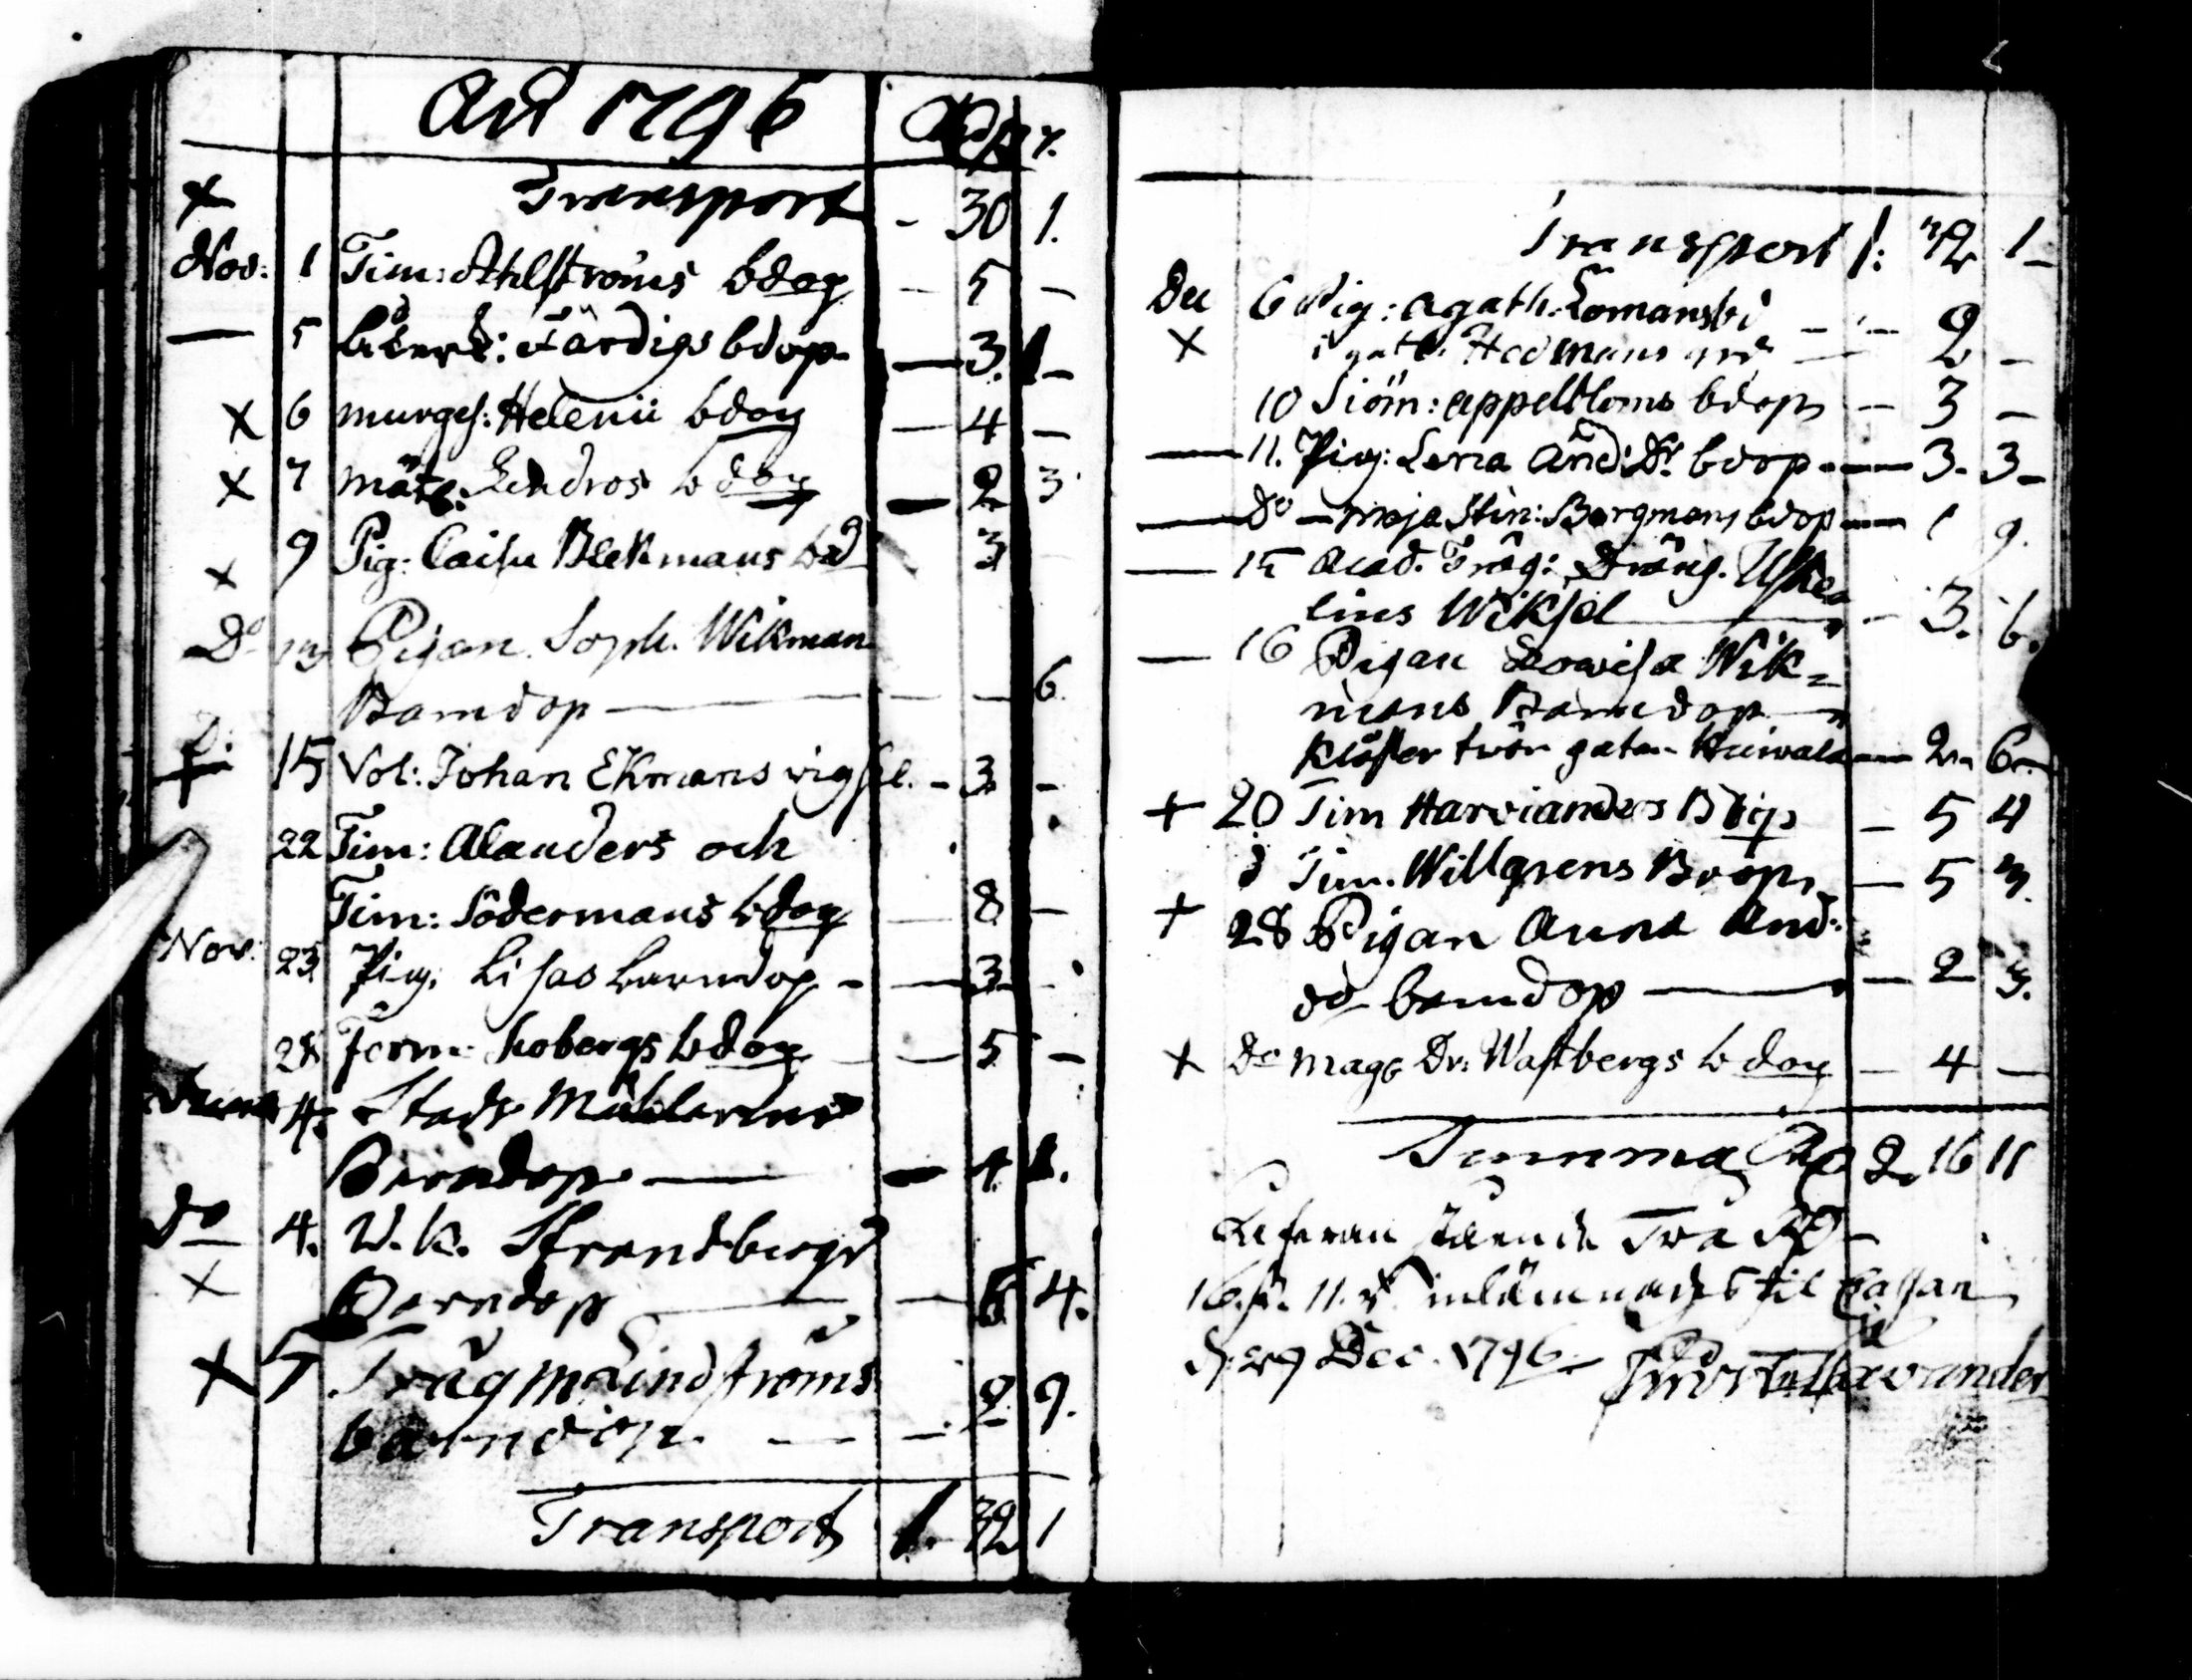 Año 1796 Rd ß r.
x Transport - 30 1.
Nov: 1 Tim: Ahlströms bdop - 5 -
— 5 Färdigs bdop — 3. 1 -
x 6 murges: Helenii bdop — 4 -
x 7 mäst: Lendros bdop — 2 3
x 9 Pig: Caisa Blekmans bd 3
Do 13 Pigan. Soph. Wikman
Barndop — — — 6.
15 Vol: Johan Ekmans vigsel. - 3 -
22 Tim: Alanders och
Tim: Södermans bdop — 8 -
Nov: 23 Pig. Lisas barndop - — 3 -
28 Form: bdop — 5 -
4. Stads
Barndop — — 4. 1.
do 4. W. k. Strandbergs
x Barndop — — 6 4.
x 5 Trägm Lindströms
barndop. — — 2. 9.
Transport 1. 32 1
Transport 1: 32 1 -
Dec 6 Pig: agath. Lomanski - - 2 -
x i gatl. Hedmans grd —
10 Siöm: appelbloms bdop - 3 -
— 11. Pig: Lena And: Dr bdop - — 3 - 3 -
— do — maja Stin: Bergmans bdop — 1 9.
— 15 Acad. Träg: Dräng.
lius Wiksel — - 3. 6.
— 16 Pigan Lovisa Wik=
mans Barndop —
Kloster tvär gatan — 2. 6 -
+ 20 Tim Harvianders Bdop - 5 4
d Tim. Willgrens Bdop — 5 3.
+ 28 Pigan Anna And:
dr barndop — — 2 3.
x Do mag: Dr: Wastbergs bdop — 4 —
Summa Rd 2. 16 11
Två Rd -
16 ß. 11. r inlämnades til Cassan
d. 29 Dec. 1796. -